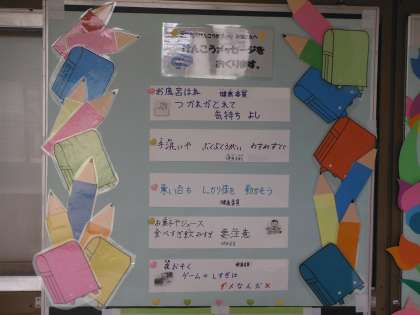 けんこうメッセージを
おくります。
お風呂はね 健康委員
つかれがとれて
気持ち よし
手洗いや ぶくぶくうがい わすれずに
寒い日も しっかり体を 動かそう
健康委員
お菓子やジュース
食べすぎ飲みすぎ 要注意
夜おそく
ゲームのしすぎは
ダメなんだ×